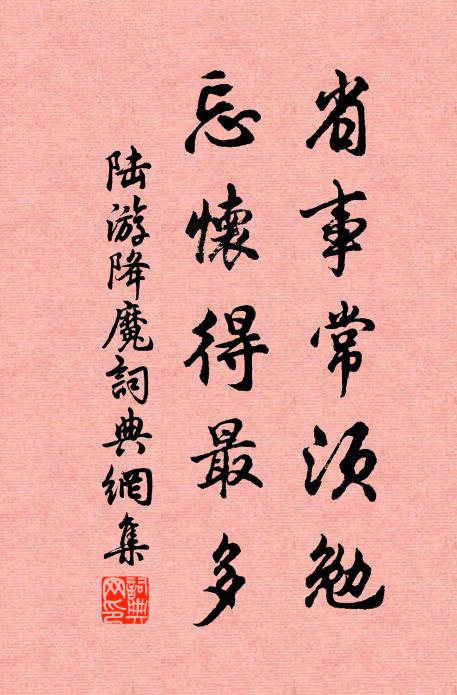 省事常須勉
忘懷得最多
陸游降魔詞典網集
詞典網印